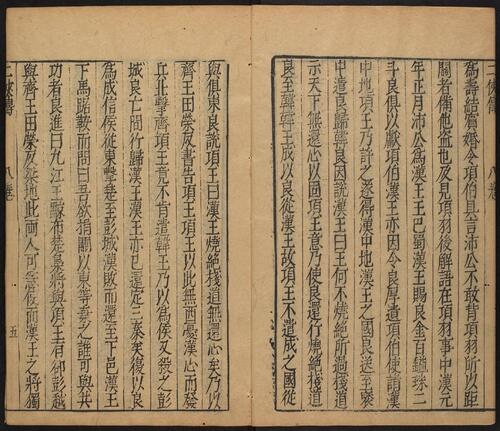 為壽結賓婚令項伯具言沛公不敢背項羽所以距
關者備他盜也及見項羽後解語在項羽事中漢元
年正月沛公為漢王王巴蜀漢王賜良金百鎰珠二
斗良俱以獻項伯漢王亦因令良厚遺項伯使請漢
中地項王乃許之遂得漢中地漢王之國良送至褒
中遣良歸韓良因說漢王曰王何不燒絕所過棧道
示天下無還心以固項王意乃使良還行燒絕棧道
良至韓韓王成以良從漢王故項王不遣成之國從
與俱東良說項王曰漢王燒絕棧道無還心矣乃以
齊王田榮反書告項王項王以此無西憂漢心而發
兵北擊齊項王竟不肯遣韓王乃以為侯又殺之彭
城良亡間行歸漢王漢王亦已還定三秦矣復以良
為成信侯從東擊楚至彭城漢敗而還至下邑漢王
下馬踞鞍而問曰吾欲捐關以東等棄之誰可與共
功者良進曰九江王黥布楚梟將與項王有郄彭越
與齊王田榮反梁地此兩人可急使而漢王之將獨
八卷
五